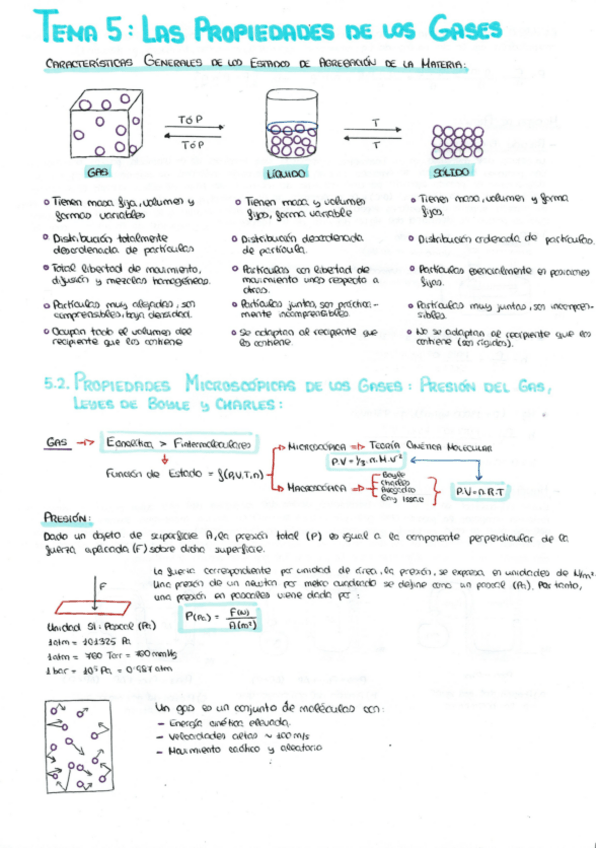 TEMA 5: LAS PROPIEDADES DE LOS GASES
CARACTERÍSTICAS GENERALES DE LOS ESTADOS DE AGREGACIÓN DE LA MATERIA:
T ó P
T ó P
T
T
GAS
LÍQUIDO
SÓLIDO
Tienen masa fija, volumen y
formas variables
Distribución totalmente
desordenada de partículas
Total libertad de movimiento,
difusión y mezclas homogéneas.
Partículas muy alejadas, son
comprensibles, baja densidad.
Ocupan todo el volumen del
recipiente que los contiene
Tienen masa y volumen
fijos, forma variable
Distribución desordenada
de partícula.
Partículas con libertad de
movimiento unos respecto a
otras.
Partículas juntas, son práctica-
mente incomprensibles
Se adaptan al recipiente que
los contiene.
Tienen masa, volumen y forma
fijos.
Distribución ordenada de partículas.
Partículas esencialmente en posiciones
fijas.
Partículas muy juntas, son incompren-
sibles.
No se adaptan al recipiente que los
contiene (son rígidos).
5.2. PROPIEDADES MICROSCÓPICAS DE LOS GASES: PRESIÓN DEL GAS,
LEYES DE BOYLE Y CHARLES:
GAS
Ecinética > Fintermoleculares
Función de Estado = f(P,V,T,n)
MICROSCÓPICA => TEORÍA CINÉTICA MOLECULAR
P.V = 1/3 . n. M. v²
MACROSCÓPICA =>
Boyle
Charles
Avogadro
Gay
P.V = n.R.T
PRESIÓN:
Dado un objeto de superficie A, la presión total (P) es igual a la componente perpendicular de la
fuerza aplicada (F) sobre dicha superficie.
F
La fuerza correspondiente por unidad de área, la presión, se expresa en unidades de N/m².
Una presión de un newton por metro cuadrado se define como un pascal (Pa). Por tanto,
una presión en pascales viene dada por:
P(Pa) = F(N) / A(m²)
Unidad SI: Pascal (Pa)
1atm = 101325 Pa
1atm = 760 Tor = 760 mmHg
1 bar = 10⁵ Pa = 0'987 atm
Un gas es un conjunto de moléculas con:
- Energía cinética elevada
- Velocidades altas ~ 100 m/s
- Movimiento caótico y aleatorio